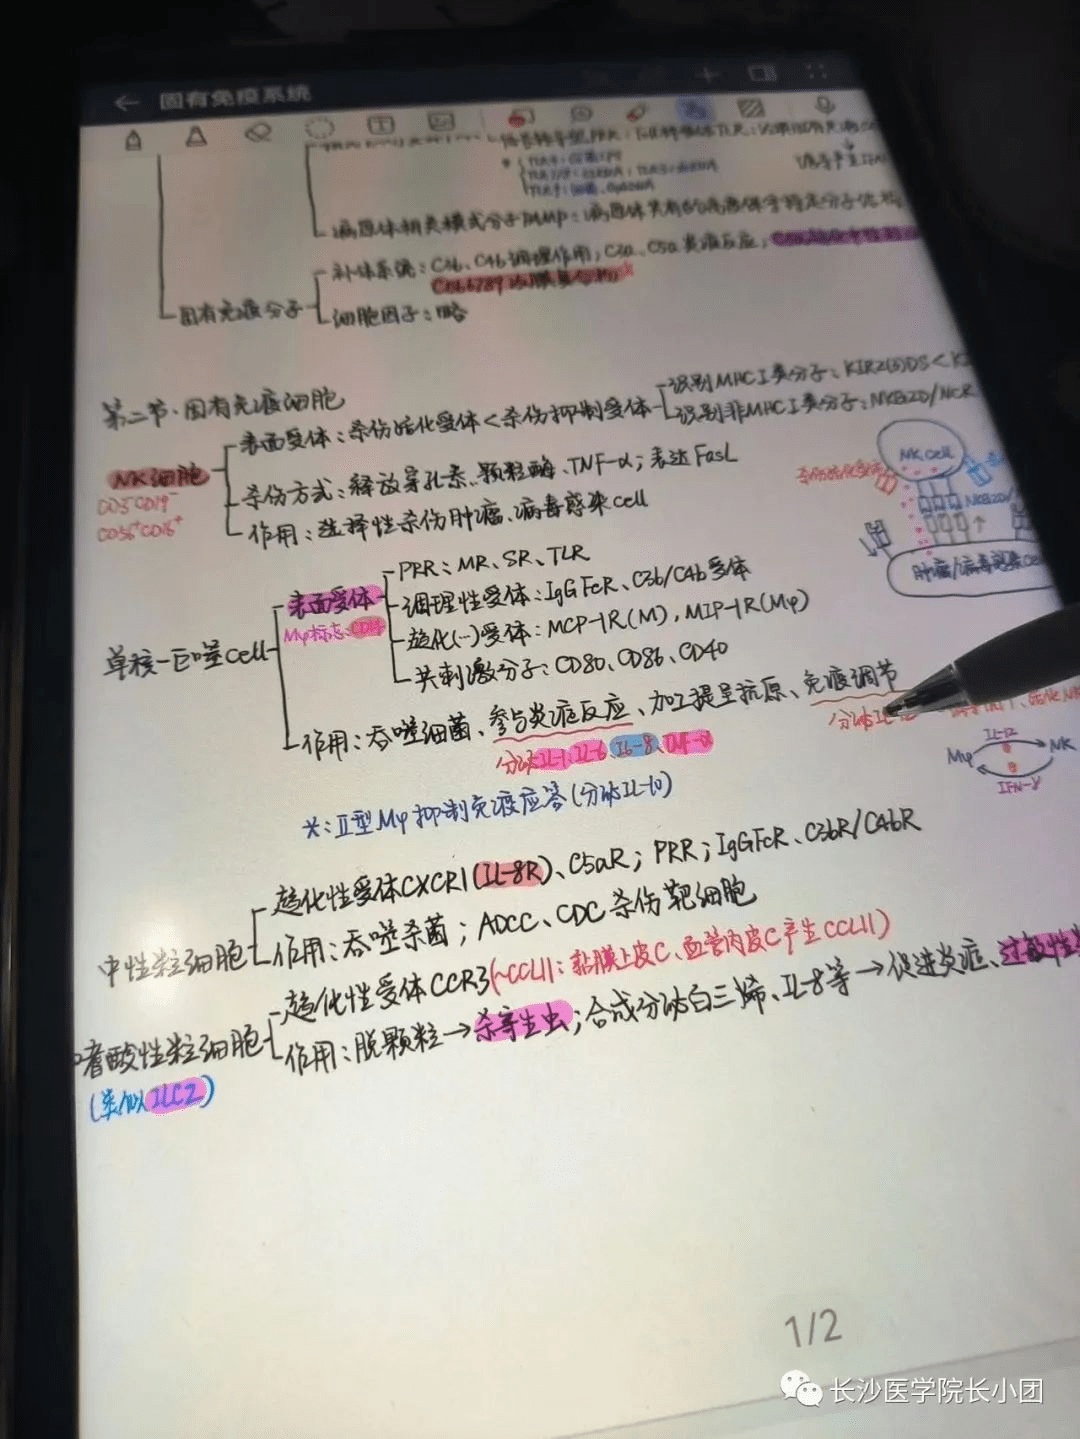 固有免疫系统
病原体相关模式分子PAMP：病原体共有的高度保守特定分子结构
补体系统：C3b、C4b调理作用；C3a、C5a炎症反应；
固有免疫分子
细胞因子：略
第二节·固有免疫细胞
识别MHC I类分子：KIR2(3)DS<
表面受体：杀伤活化受体<杀伤抑制受体
识别非MHC I类分子：NKG2D/NCR
NK细胞
杀伤方式：释放穿孔素、颗粒酶、TNF-α；表达FasL
作用：选择性杀伤肿瘤、病毒感染cell
CD3⁻CD19⁻
CD56⁺CD16⁺
NK cell
杀伤活化受体
NKG2D/
肿瘤/病毒感染cell
PRR：MR、SR、TLR
表面受体
调理性受体：IgGFcR、C3b/C4b受体
Mφ标志：CD14
趋化(~)受体：MCP-1R(M)，MIP-1R(Mφ)
单核-巨噬cell
共刺激分子：CD80、CD86、CD40
作用：吞噬细菌、参与炎症反应、加工提呈抗原、免疫调节
分泌IL-1、IL-6、IL-8、TNF-α
分泌IL-12
IL-12
Mφ NK
IFN-γ
*：II型Mφ抑制免疫应答(分泌IL-10)
趋化性受体CXCR1(IL-8R)、C5aR；PRR；IgGFcR、C3bR/C4bR
中性粒细胞
作用：吞噬杀菌；ADCC、CDC杀伤靶细胞
趋化性受体CCR3(~CCL11：黏膜上皮C、血管内皮C产生CCL11)
嗜酸性粒细胞
作用：脱颗粒→杀寄生虫；合成分泌白三烯、IL-8等→促进炎症、过敏性
(类似ILC2)
1/2
长沙医学院长小团